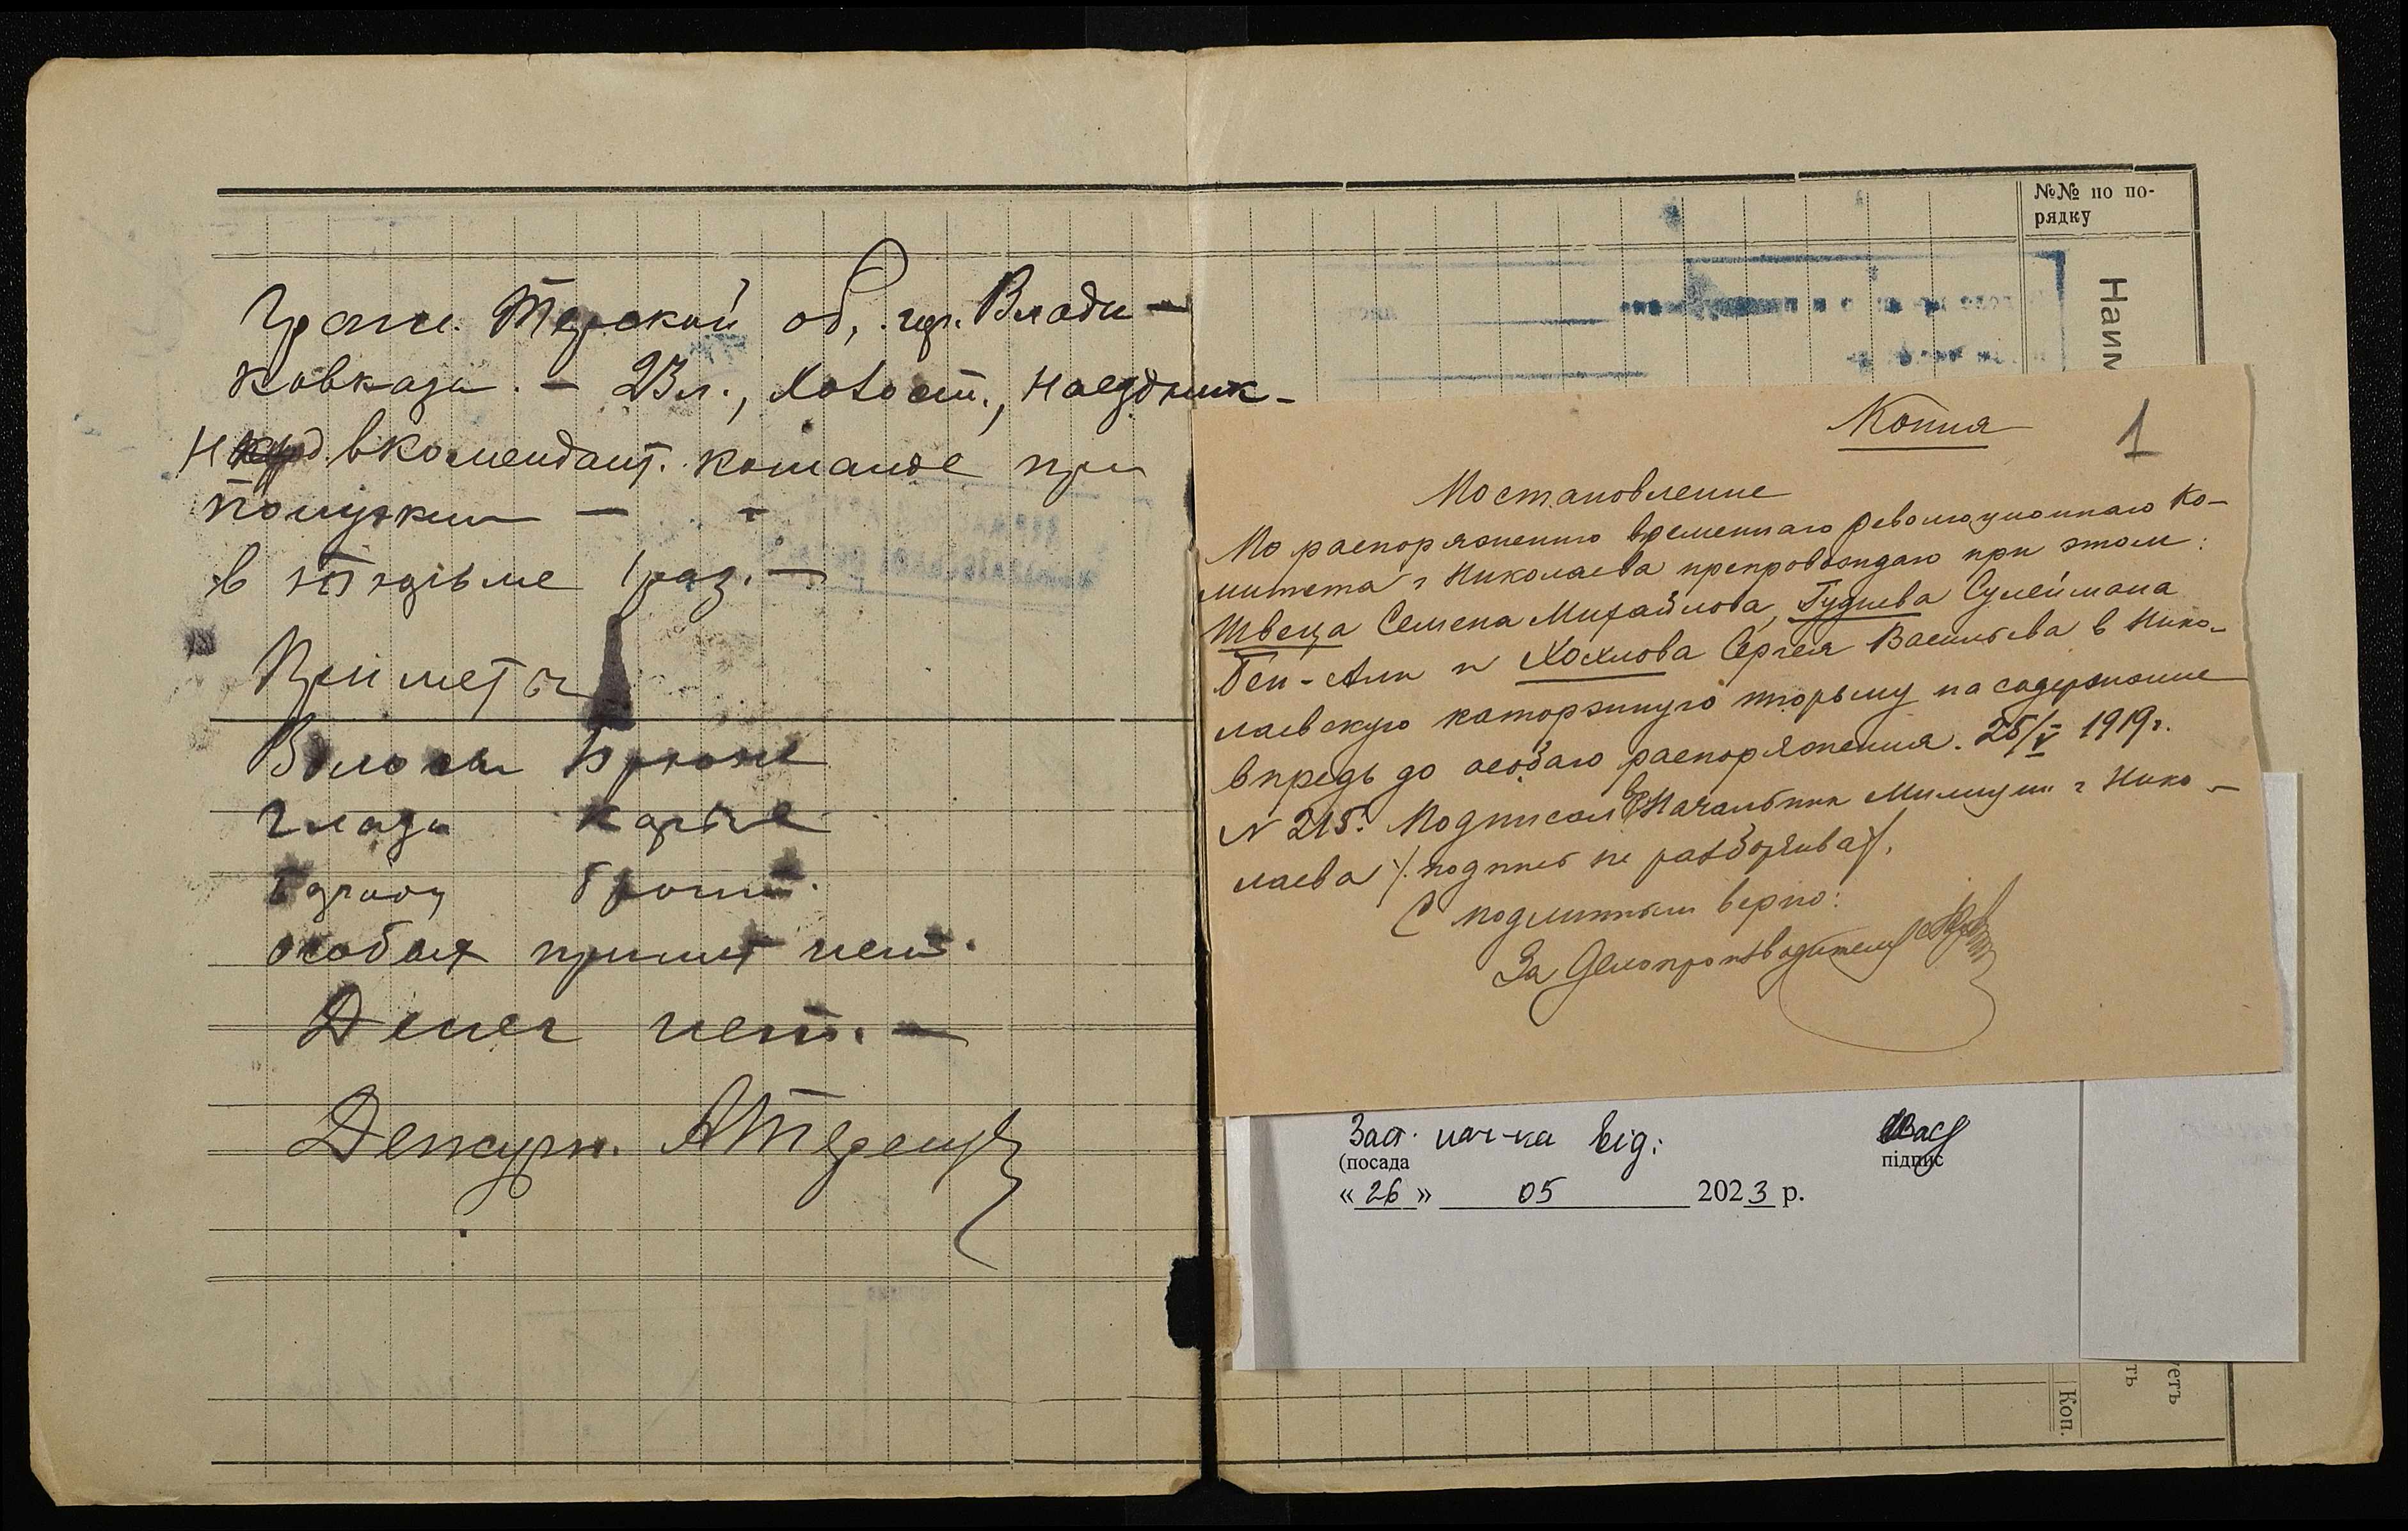 Гражд. Терской об, гор. Влади-
кавказа. - 23 л., холост., наездник-
в комендант. команде при
в тюрьме 1 раз. -
Приметы
Волосы Брюне
Глаза карие
особых примет нет.
Денег нет. -
Дежурн.
№№ по по-
рядку
Наим
Копия
1
Постановление
По распоряжению временнаго революционнаго Ко-
митета г Николаева препровождаю при этом:
Швеца Семена Михайлова, Гудиева Сулеймана
Бен-Али и Хохлова Сергея Васильева в Нико-
лаевскую каторжную тюрьму на содержание
впредь до особаго распоряжения. 25/V 1919 г.
N 215. Подписал Начальник Милиции г Нико-
лаева /. подпись не разборчива/.
С подлинным верно:
За Делопроизводителя
Заст. нач-ка від:
(посада
підпис
« 26 » 05 2023 р.
Коп.
ть
уетъ